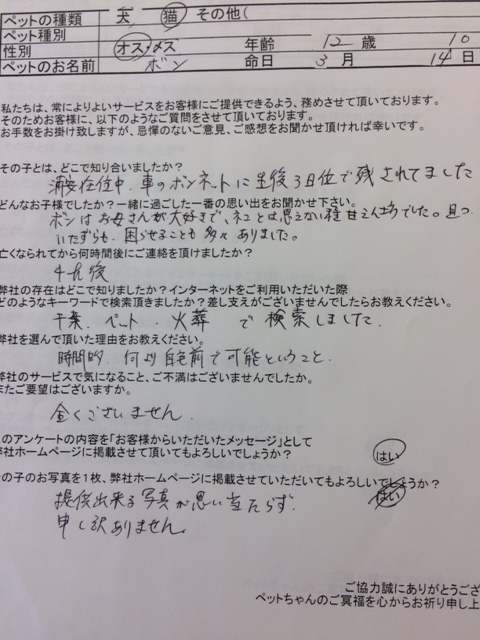 ペットの種類 犬 猫 その他(
ペット種別
性別 オス・メス 年齢 12 歳 10
ペットのお名前 ボン 命日 3 月 14 日
私たちは、常によりよいサービスをお客様にご提供できるよう、務めさせて頂いております。
そのためお客様に、以下のようなご質問をさせて頂いております。
お手数をお掛け致しますが、忌憚のないご意見、ご感想をお聞かせ頂ければ幸いです。
その子とは、どこで知り合いましたか?
浦安在住中、車のボンネットに生後3日位で残されてました
どんなお子様でしたか?一緒に過ごした一番の思い出をお聞かせ下さい。
ボンはお母さんが大好きで、ネコとは思えない程甘えん坊でした。且つ
いたずらも、困らせることも多々ありました。
亡くなられてから何時間後にご連絡を頂けましたか?
今社の存在はどこで知りましたか?インターネットをご利用いただいた際
どのようなキーワードで検索頂きましたか?差し支えがございませんでしたらお教えください。
千葉、ペット、火葬 で検索しました。
弊社を選んで頂いた理由をお教えください。
時間的、何より自宅前で可能ということ。
弊社のサービスで気になること、ご不満はございませんでしたか。
またご要望はございますか。
全くございません。
のアンケートの内容を「お客様からいただいたメッセージ」として
弊社ホームページに掲載させて頂いてもよろしいでしょうか? はい
の子のお写真を1枚、弊社ホームページに掲載させていただいてもよろしいでしょうか?
提供出来る写真が思い当たらず、 はい
申し訳ありません。
ご協力誠にありがとうござ
ペットちゃんのご冥福を心からお祈り申し上